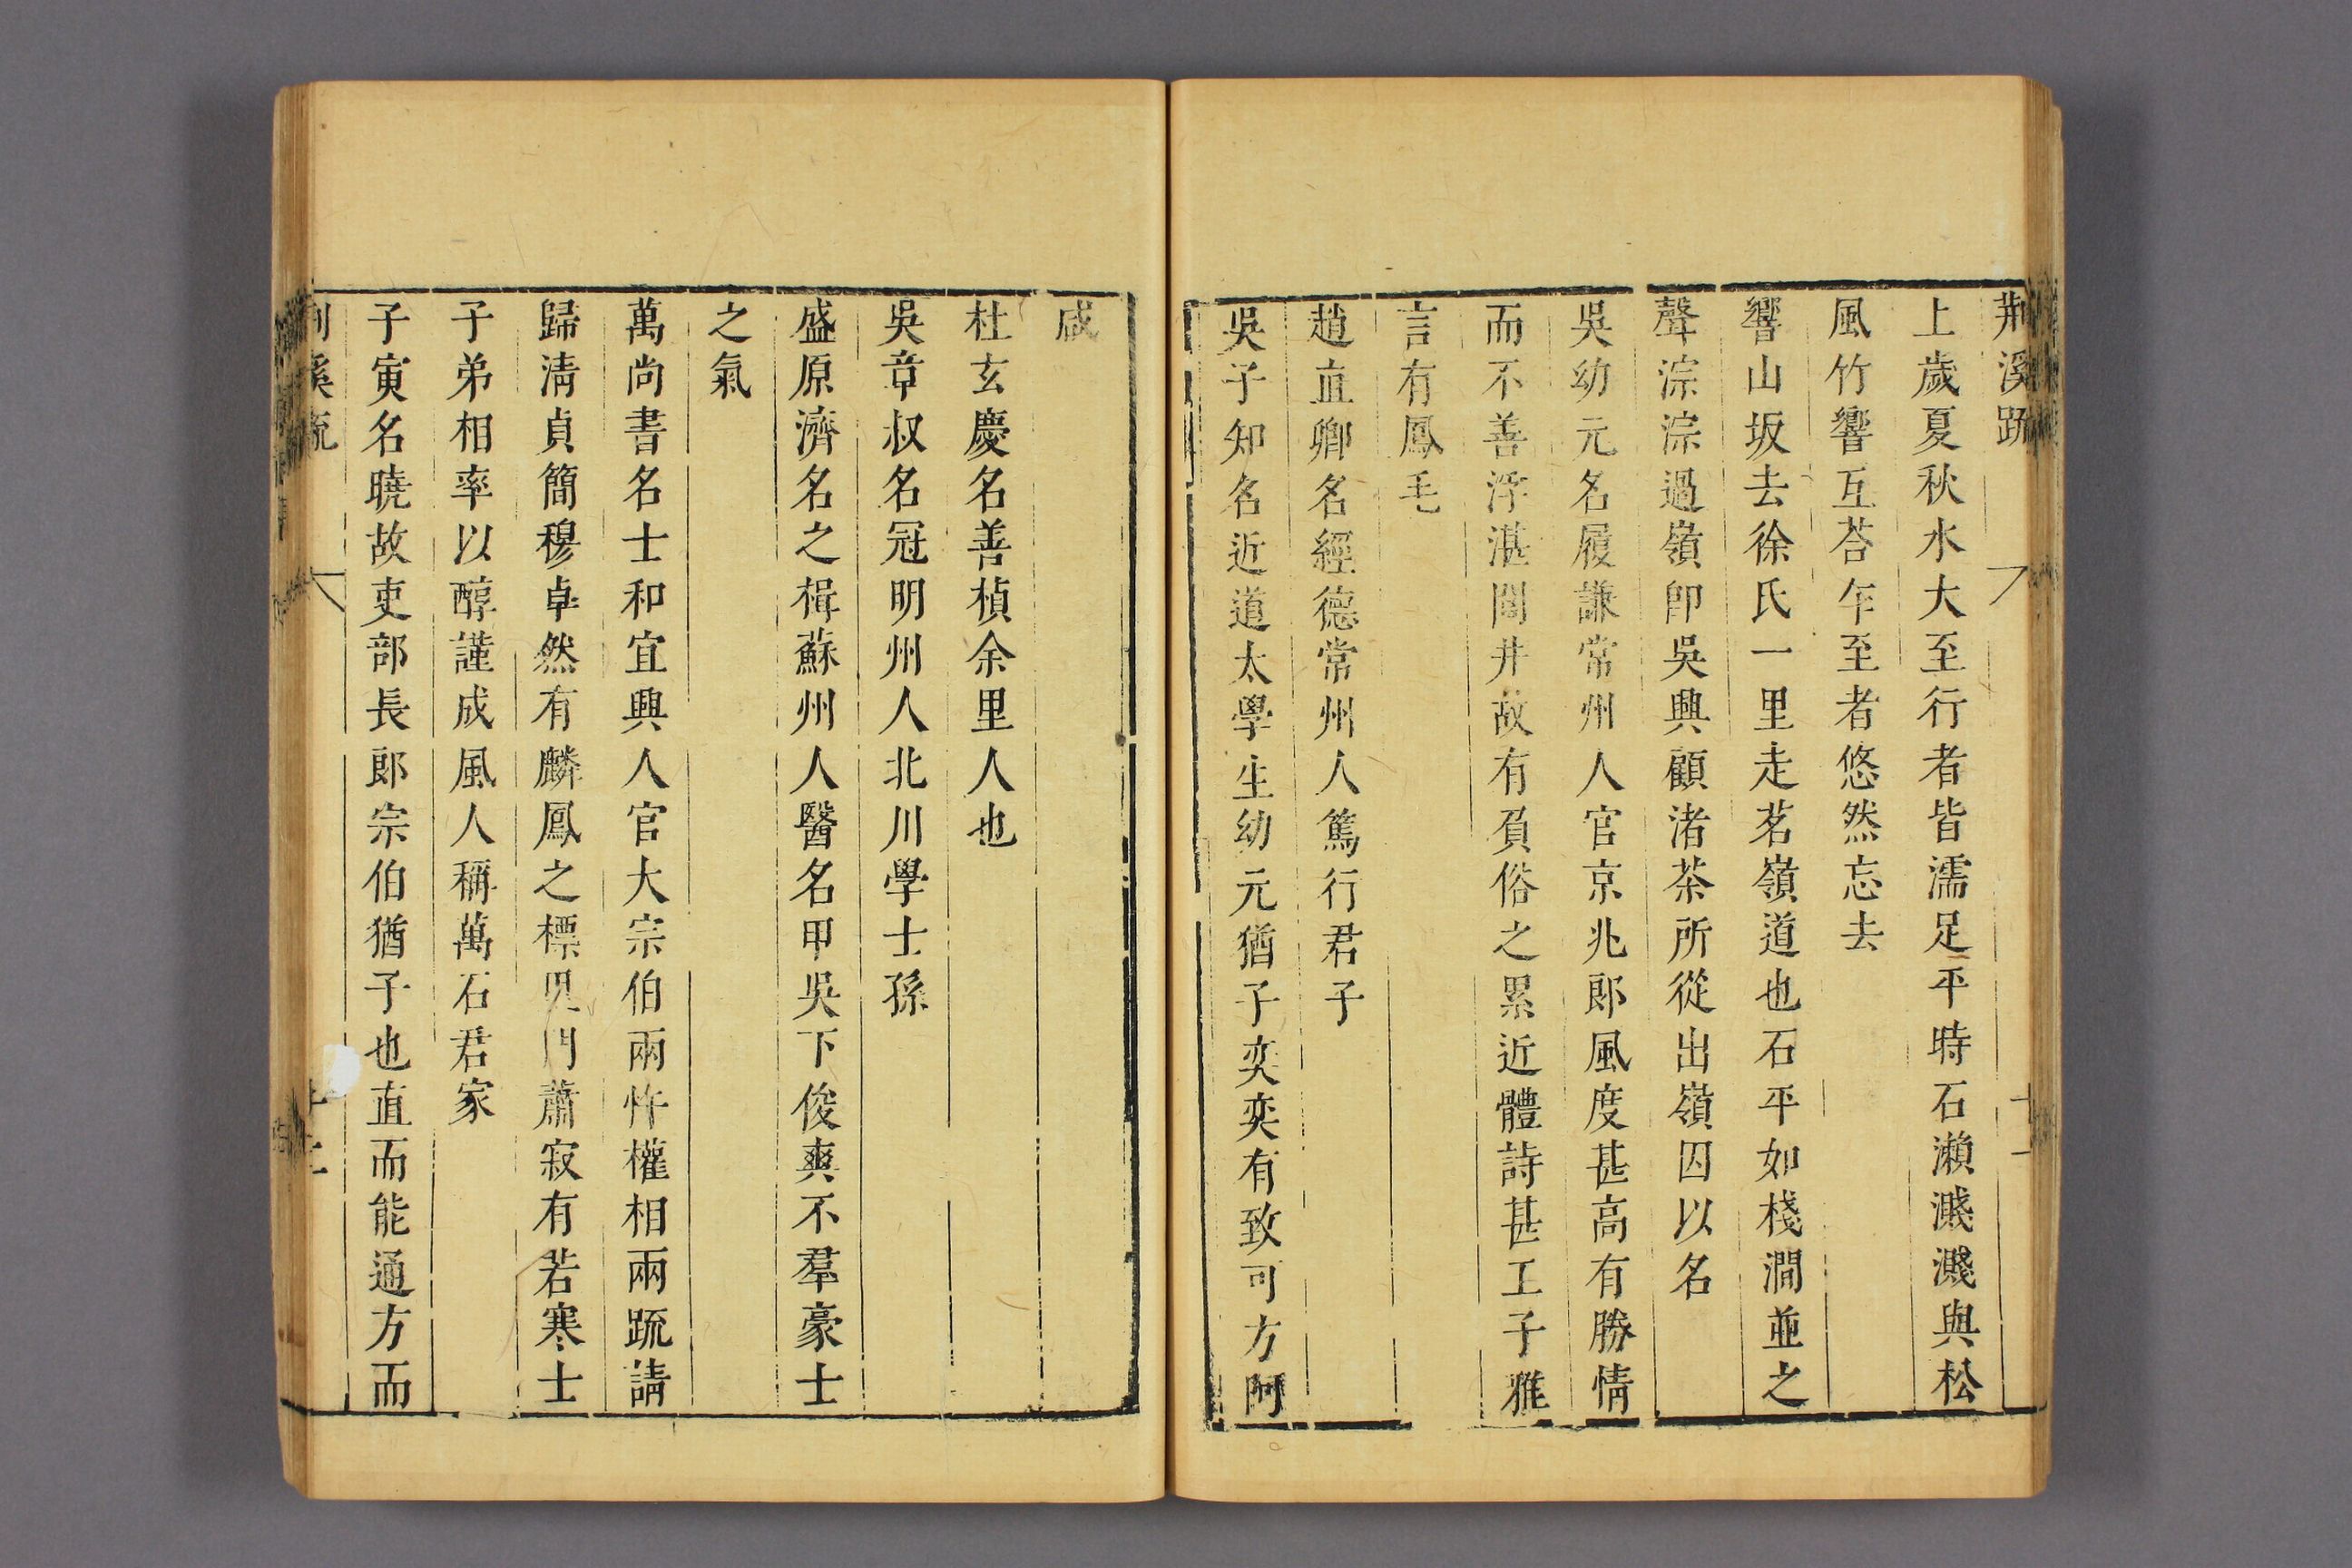 荆溪䟽 十一
上歲夏秋水大至行者皆濡足平時石瀨濺濺與松
風竹響互荅乍至者悠然忘去
響山坂去徐氏一里走茗嶺道也石平如棧澗並之
聲淙淙過嶺卽吳興顧渚茶所從出嶺因以名
吳幼元名履謙常州人官京兆郎風度甚高有勝情
而不善浮湛閭井故有負俗之累近體詩甚工子雅
言有鳳毛
趙直卿名經德常州人篤行君子
吳子知名近道太學生幼元猶子奕奕有致可方阿
咸
杜玄慶名善楨余里人也
吳章叔名冠明州人北川學士孫
盛原濟名之楫蘇州人醫名甲吳下俊爽不羣豪士
之氣
萬尚書名士和宜興人官大宗伯兩忤權相兩䟽請
歸清貞簡穆卓然有麟鳳之標門蕭寂有若寒士
子弟相率以醇謹成風人稱萬石君家
子寅名曉故吏部長郎宗伯猶子也直而能通方而
溪